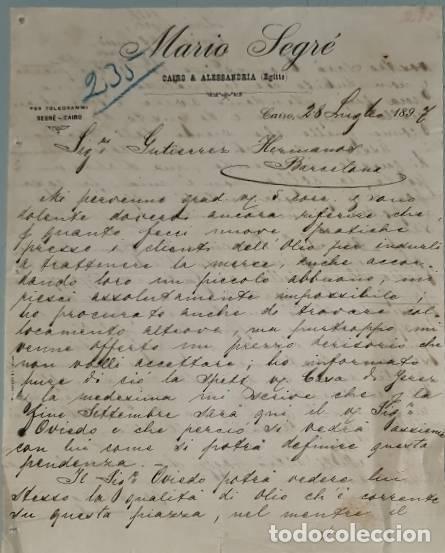 Mario Segré
CAIRO & ALESSANDRIA (Egitto)
235
PER TELEGRAMMI
SEGRÉ - CAIRO
Cairo, 28 Luglio 1897
Sigri Gutierrez Hermanos
Barcelona
Mi pervenne grad. vs 5 corr. e sono
dolente dovervi ancora riferire che
per quanto feci nuove pratiche
presso i clienti dell'Olio per indurli
a trattenere la merce, anche accor-
dando loro un piccolo abbuono, mi
riescì assolutamente impossibile;
ho procurato anche di trovare col-
locamento altrove, ma purtroppo mi
venne offerto un prezzo derisorio che
non volli accettare; ho informato
pure di ciò la Spett. vs Casa di Jerez
e la medesima mi scrive che per la
fine Settembre sarà qui il vs Sigr
Oviedo e che perciò si vedrà assieme
con lui come si potrà definire questa
pendenza.
Il Sigr Oviedo potrà vedere lui
stesso la qualità di Olio ch'è corrente
su questa piazza, nel mentre il
todocoleccion.net